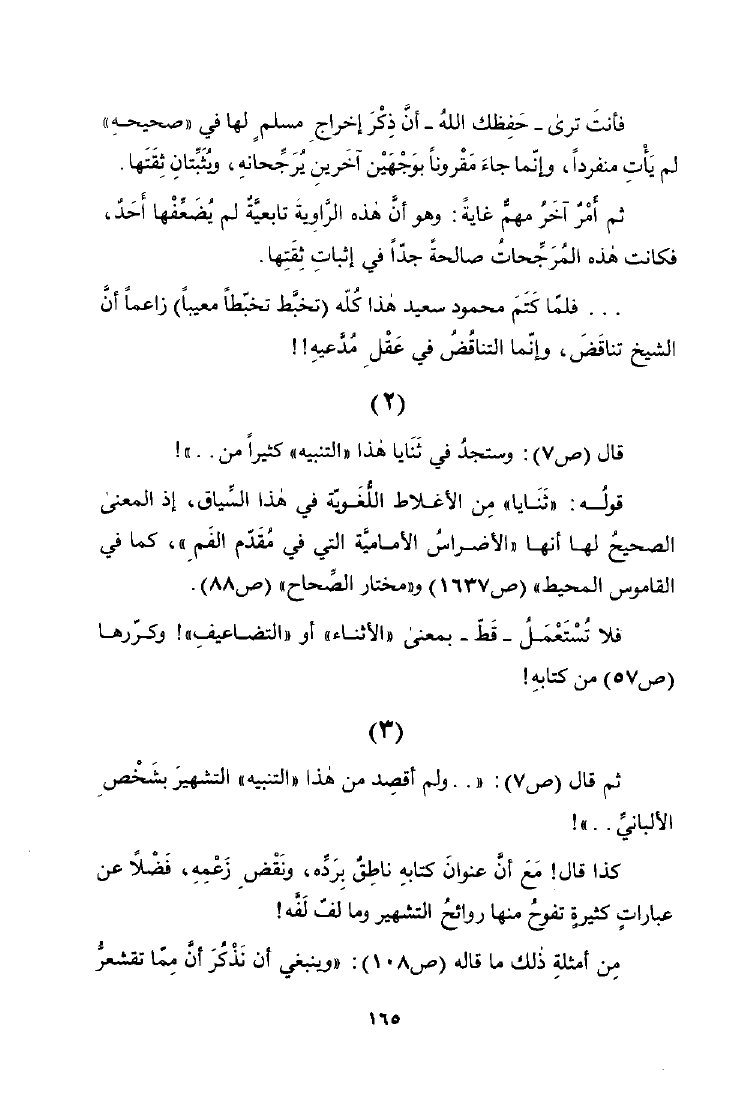 فأنتَ ترىٰ ـ حَفِظك اللهُ ـ أنَّ ذِكْرَ إخراجِ مسلمٍ لها في «صحيحه»
لم يَأْتِ منفرداً، وإنّما جاءَ مَقْروناً بوَجْهَيْن آخَرين يُرَجِّحانه، ويُثَبِّتانِ ثِقَتَها.
ثم أَمْرٌ آخَرُ مهمٌّ غايةً: وهو أنَّ هٰذه الرَّاويةَ تابعيَّةٌ لم يُضَعِّفْها أَحَدٌ،
فكانت هٰذه المُرَجِّحاتُ صالحةً جدّاً في إثباتِ ثِقَتِها.
... فلمّا كَتَمَ محمود سعيد هٰذا كُلّه (تخبَّط تخبّطاً معيباً) زاعماً أنَّ
الشيخ تناقَضَ، وإنّما التناقُضُ في عَقْلِ مُدَّعيهِ!!
(٢)
قال (ص٧): وستجدُ في ثَنَايا هٰذا «التنبيه» كثيراً من ..»!
قولُـه: «ثَنَـايا» مِن الأغـلاط اللُّغَـويّة في هٰذا السِّياق، إذ المعنىٰ
الصحيحُ لهـا أنهـا «الأضـراسُ الأمـاميَّة التي في مُقَدّم الفَمِ»، كما في
القاموس المحيط» (ص١٦٣٧) و«مختار الصِّحاح» (ص٨٨).
فلا تُسْتَعْمَـلُ ـ قَطّ ـ بمعنىٰ «الأثنـاء» أو «التضـاعيف»! وكـرّرهـا
(ص٥٧) من كتابهِ!
(٣)
ثم قال (ص٧): «.. ولم أقصِد من هٰذا «التنبيه» التشهيرَ بشَخْصِ
الألبانيِّ ..»!
كذا قال! مَعَ أنَّ عنوانَ كتابهِ ناطِقٌ بِرَدِّه، ونَقْضِ زَعْمِهِ، فَضْلًا عن
عباراتٍ كثيرةٍ تفوحُ منها روائحُ التشهير وما لفّ لَفَّه!
مِن أمثلةِ ذٰلك ما قاله (ص١٠٨): «وينبغي أن نَذْكُرَ أنَّ مِمّا تقشعرُّ
١٦٥